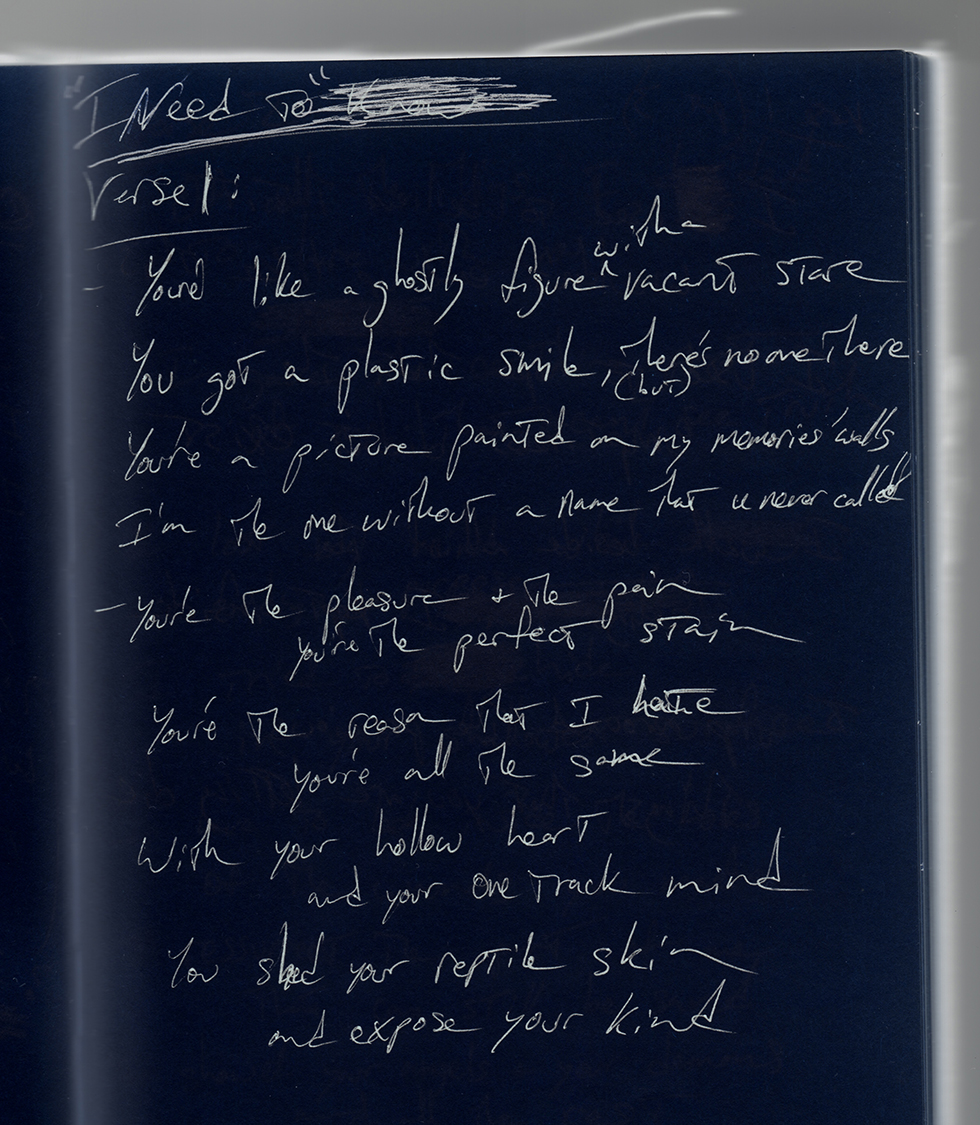 "I Need To" Know
Verse 1:
- You're like a ghostly figure with a vacant stare
You got a plastic smile, (but) there's no one there
You're a picture painted on my memories' walls
I'm the one without a name that u never called
- You're the pleasure + the pain
you're the perfect stain
You're the reason that I hate
you're all the same
With your hollow heart
and your one track mind
You shed your reptile skin
and expose your kind